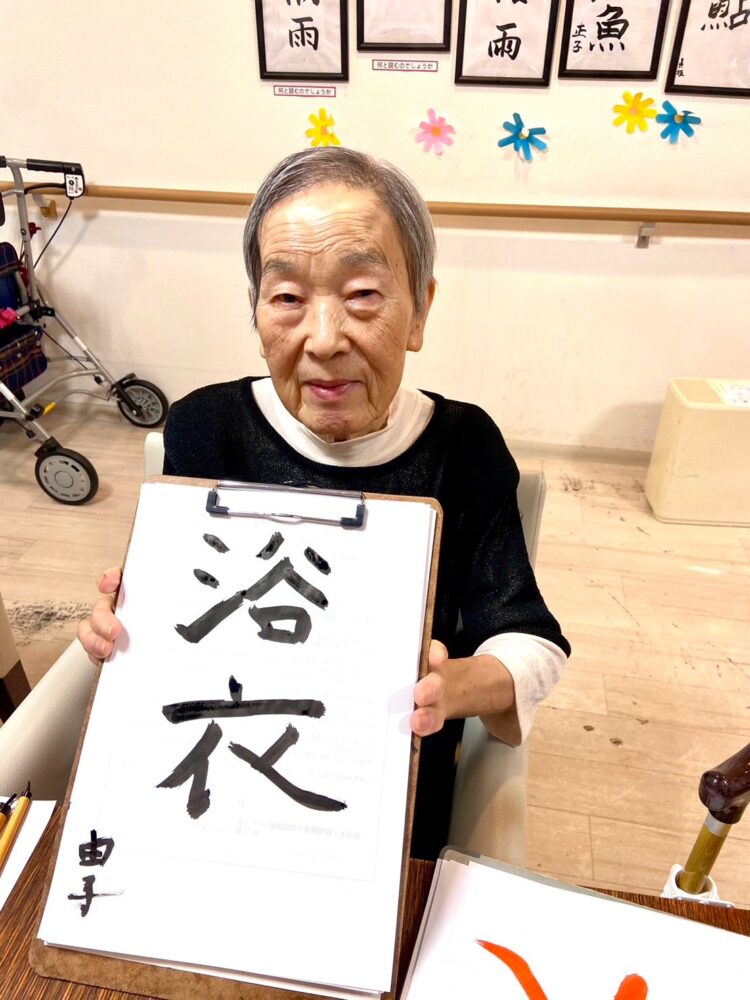 雨
何と読むのでしょうか
何と読むのでしょうか
雨
魚
正子
鮎
浴衣
由子